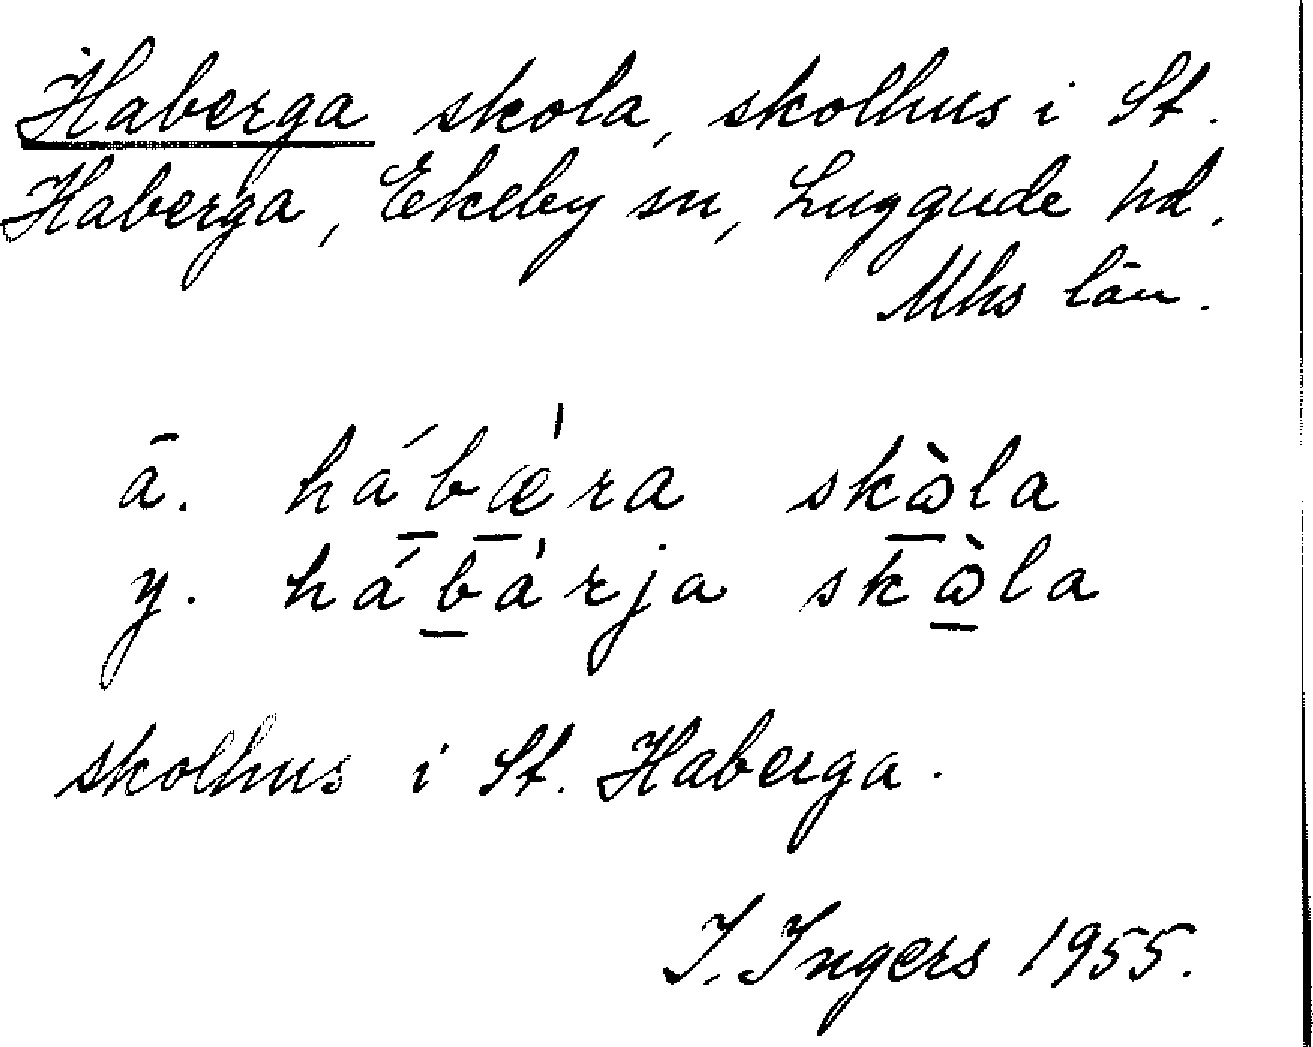 Haberga skola, skolhus i St.
Haberga, Ekeby sn, Luggude hd.
Mhs län.
ā. hábæ̀ra skὼla
y. hábàrja skὼla
skolhus i St. Haberga.
I. Ingers 1955.